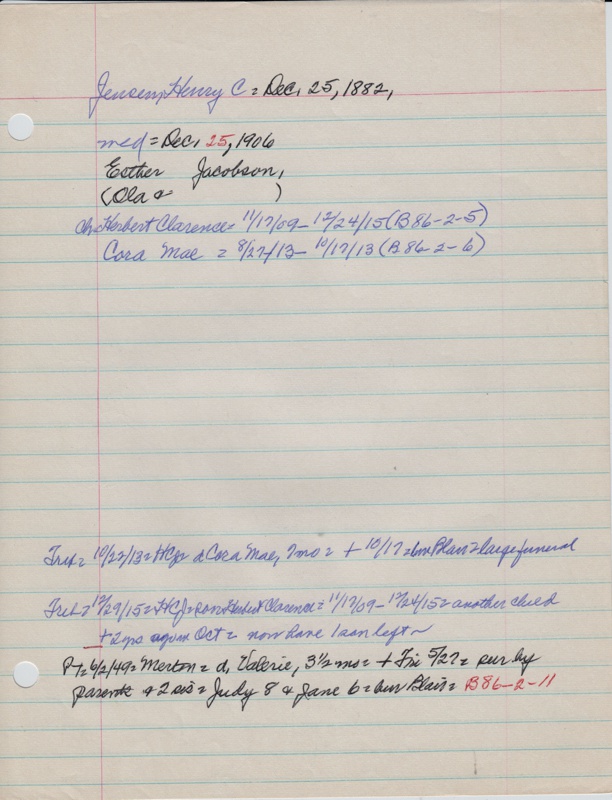 Jensen, Henry C = Dec, 25, 1882,
med = Dec, 25, 1906
Esther Jacobson,
(Ola & )
ch = Herbert Clarence = 11/17/09 - 12/24/15 (B86-2-5)
Cora Mae = 8/27/13 - 10/17/13 (B86-2-6)
Trib = 10/22/13 = HCJ = d Cora Mae, mo = + 10/17 = bur Blair = large funeral
Trib = 12/29/15 = HCJ = son Herbert Clarence = 11/17/09 - 12/24/15 = another child
+ 2 yrs ago in Oct = now have 1 son left ~
PT = 6/2/49 = Merton = d, Valerie, 3 1/2 mo = + Fri 5/27 = sur by
parents & 2 sis = Judy 8 & Jane 6 = bur Blair = B86-2-11